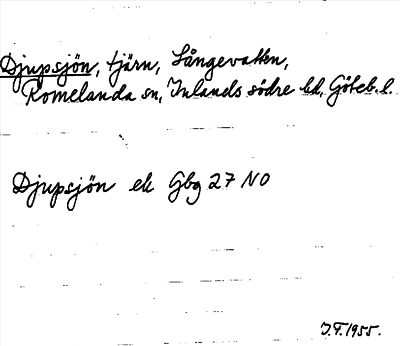 Djupsjön, tjärn, Långevatten,
Romelanda sn, Inlands södre hd, Göteb. l.
Djupsjön ek Gbg 27 NO
J.F. 1955.